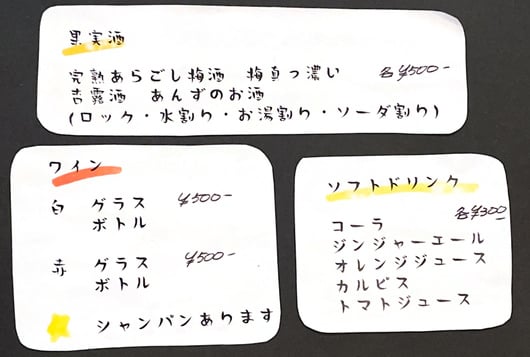 果実酒
完熟あらごし梅酒 梅真っ濃い 各¥500-
杏露酒 あんずのお酒
(ロック・水割り・お湯割り・ソーダ割り)
ワイン
白 グラス ¥500-
ボトル
赤 グラス ¥500-
ボトル
シャンパンあります
ソフトドリンク
各¥300-
コーラ
ジンジャーエール
オレンジジュース
カルピス
トマトジュース